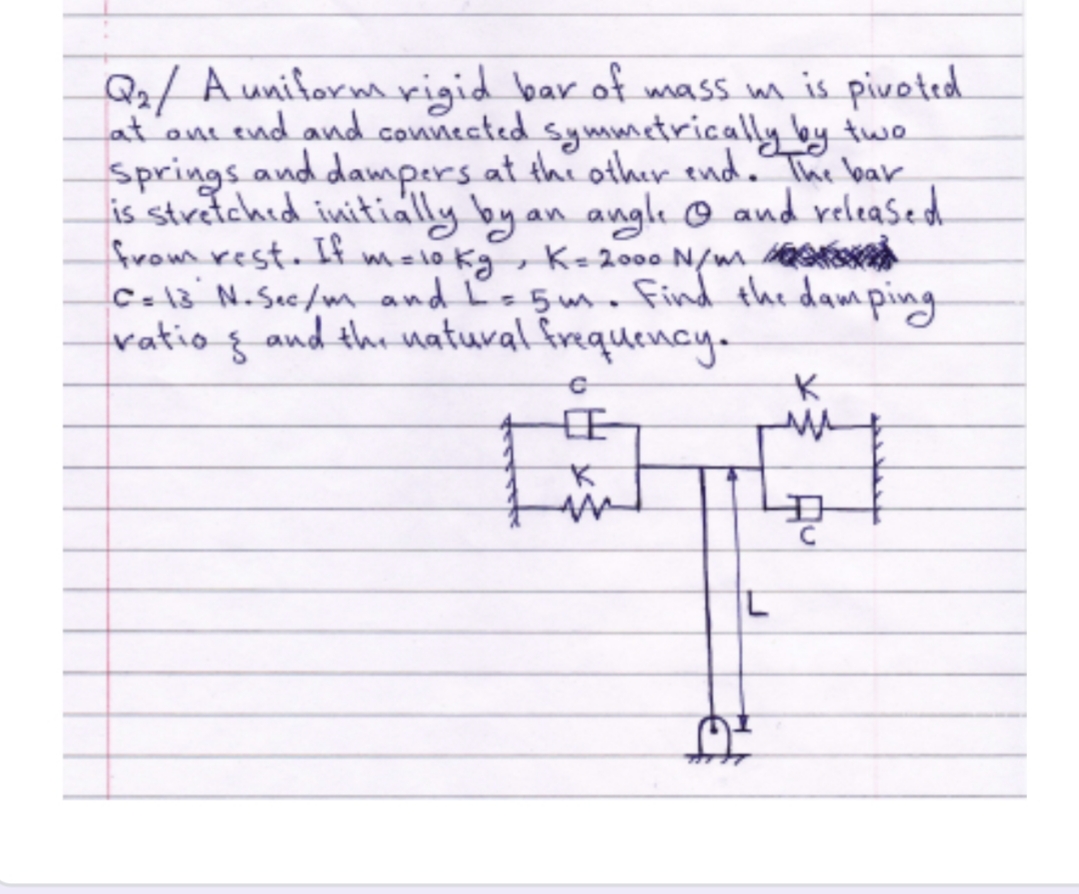 Q2/ A uniform rigid bar of mass m is pivoted
at one end and connected symmetrically by two
springs and dampers at the other end. The bar
is stretched initially by an angle θ and released
from rest. If m = 10 Kg , K = 2000 N/m
C = 13 N.Sec/m and L = 5 m. Find the damping
ratio ξ and the natural frequency.
C K
K
C
L